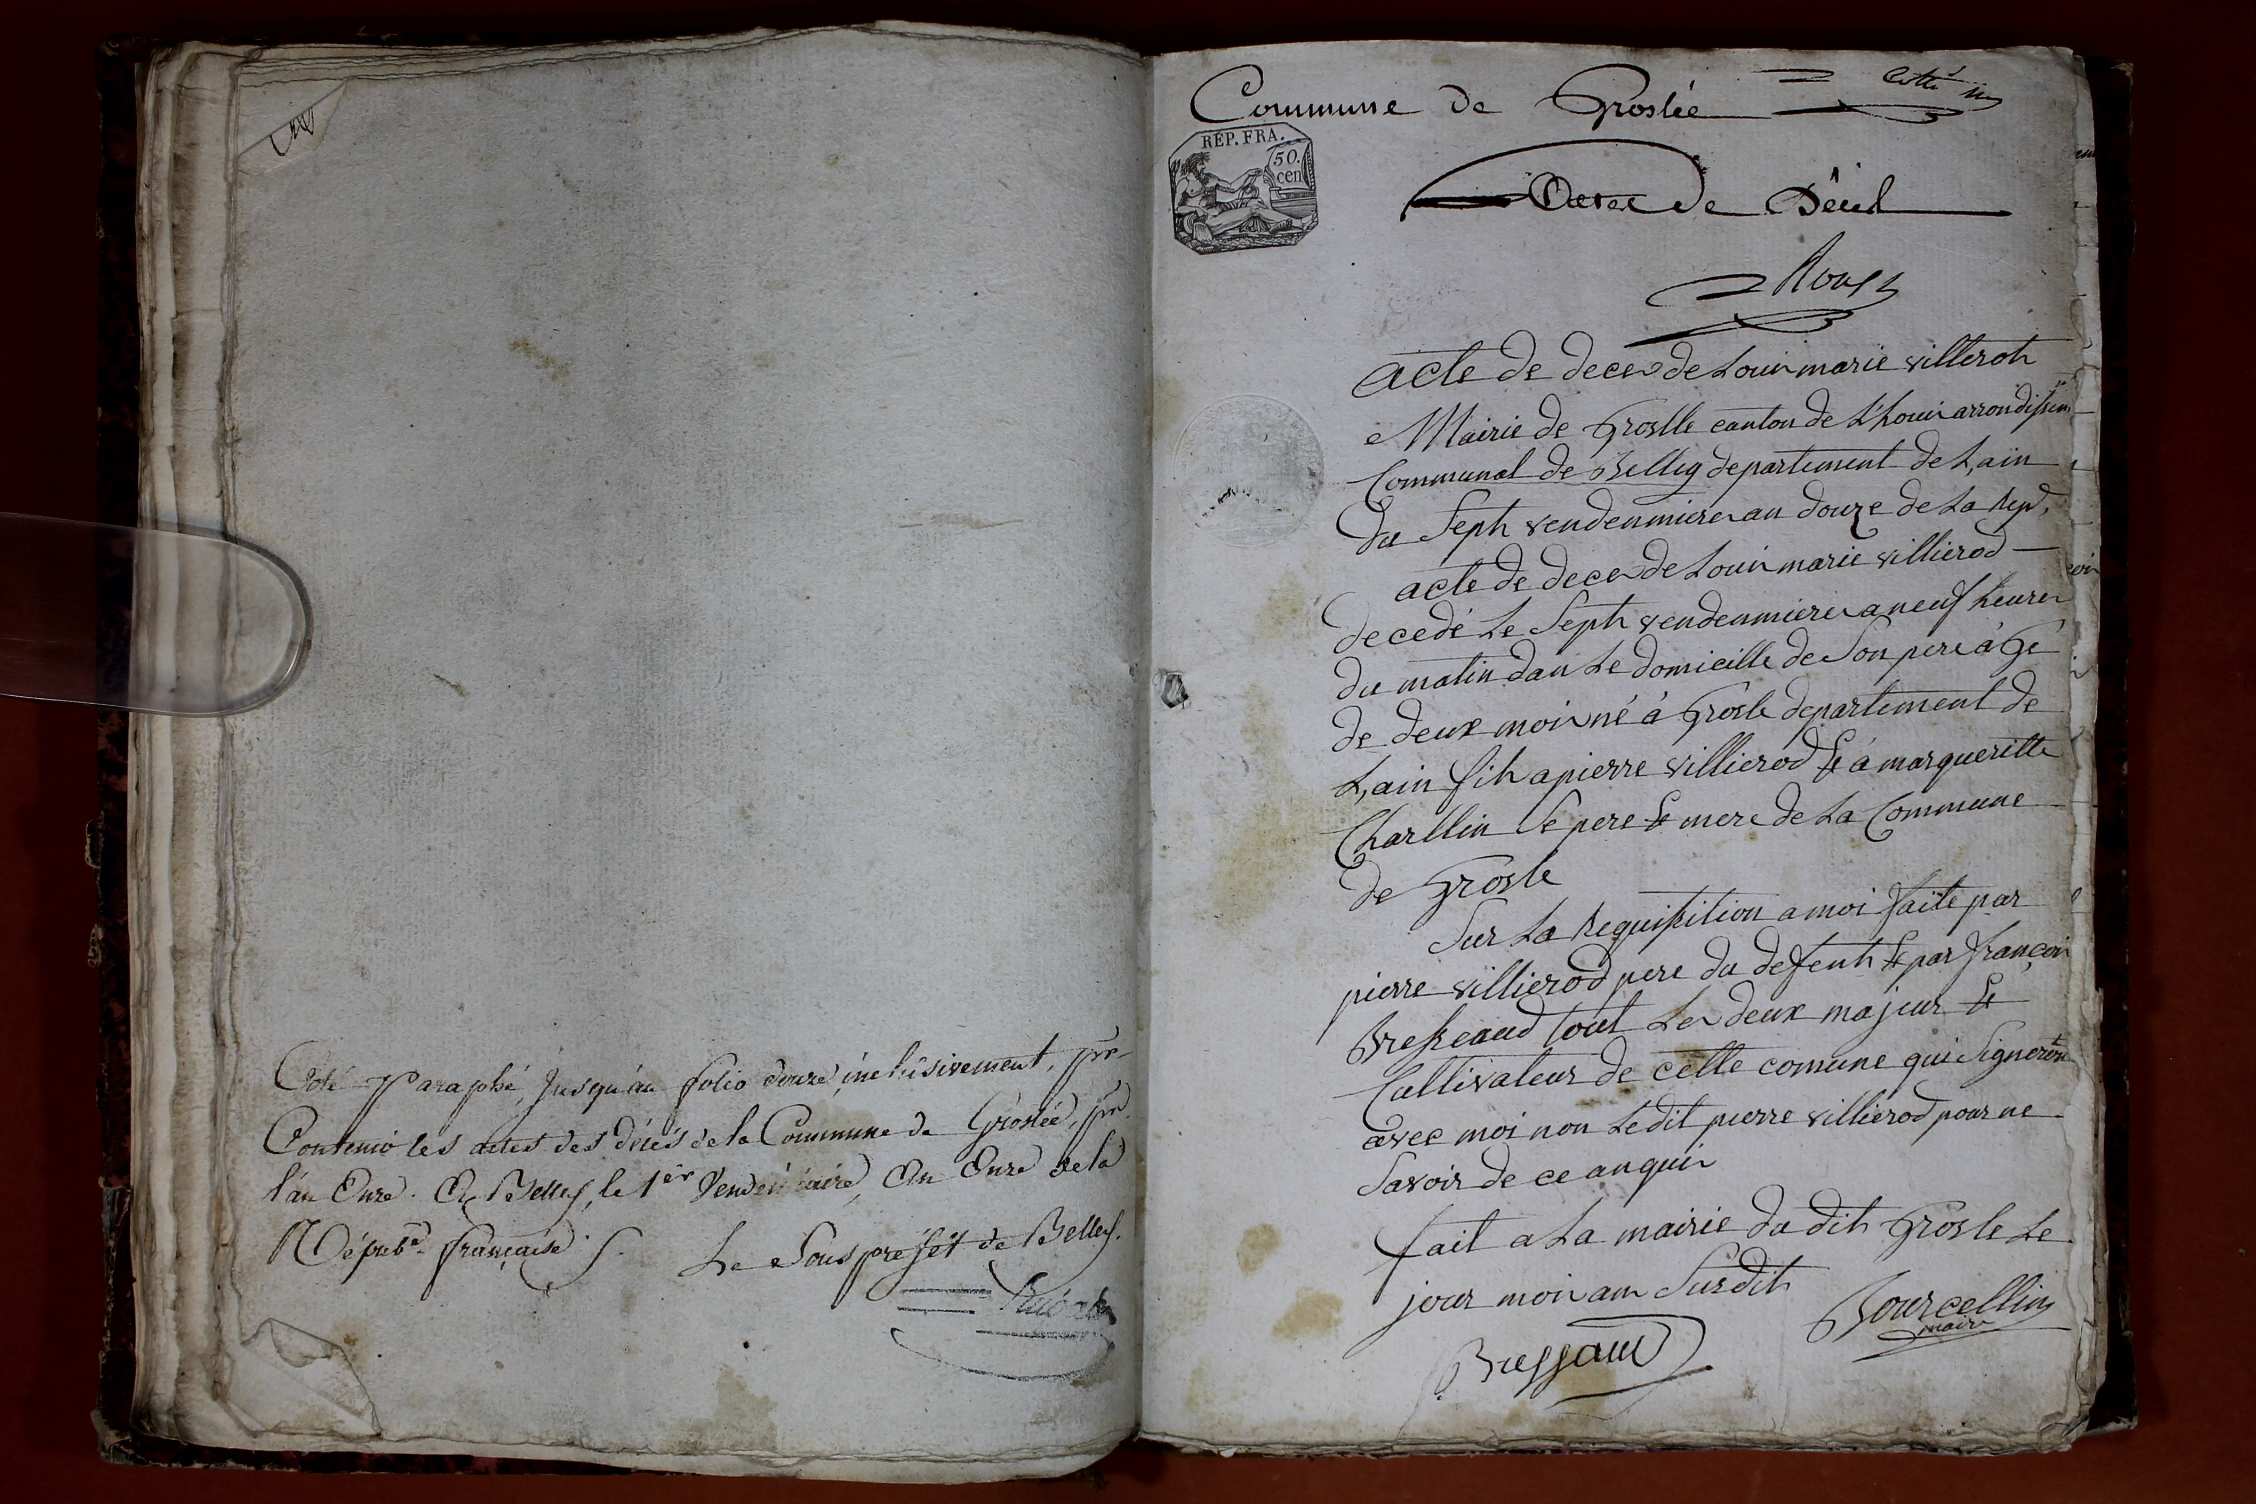 Coté Paraphé, Jusqu'au folio douze inclusivement, pr
Contenir les actes des décès de la Commune de Groslée, pr
l'an Onze. A Belley, le 1er Vendémiaire, An Onze de la
Répube. française
Le Sous préfet de Belley.
Commune de Groslée
Cotté
REP. FRA.
50.
cen
Actes de Décès
acte de deces de Louis marie villerot
Mairie de Grosllé canton de L'houis arrondissem
Communal de Belley departement de L,ain
du Sept vendenmieres an douze de La Rep.
acte de deces de Louis marie villierod
decedé Le Sept vendenmieres a neuf heures
du matin dans Le domicille de Son pere âgé
de deux mois né à Grosle departement de
L,ain fils a pierre villierod & á marguerilte
Charllin Se pere & mere de La Commune
de Grosle
Sur La Requisition a moi faite par
pierre villierod pere du defeut & par françois
Bresseaud tout Les deux majeur &
Cultivateur de cette comune qui Signeron
avec moi non Ledit pierre villierod pour ne
Savoir de ce anquis
fait a La mairie du dit Grosle Le
jour mois an Surdit
Bourcellin
maire
Bressaud